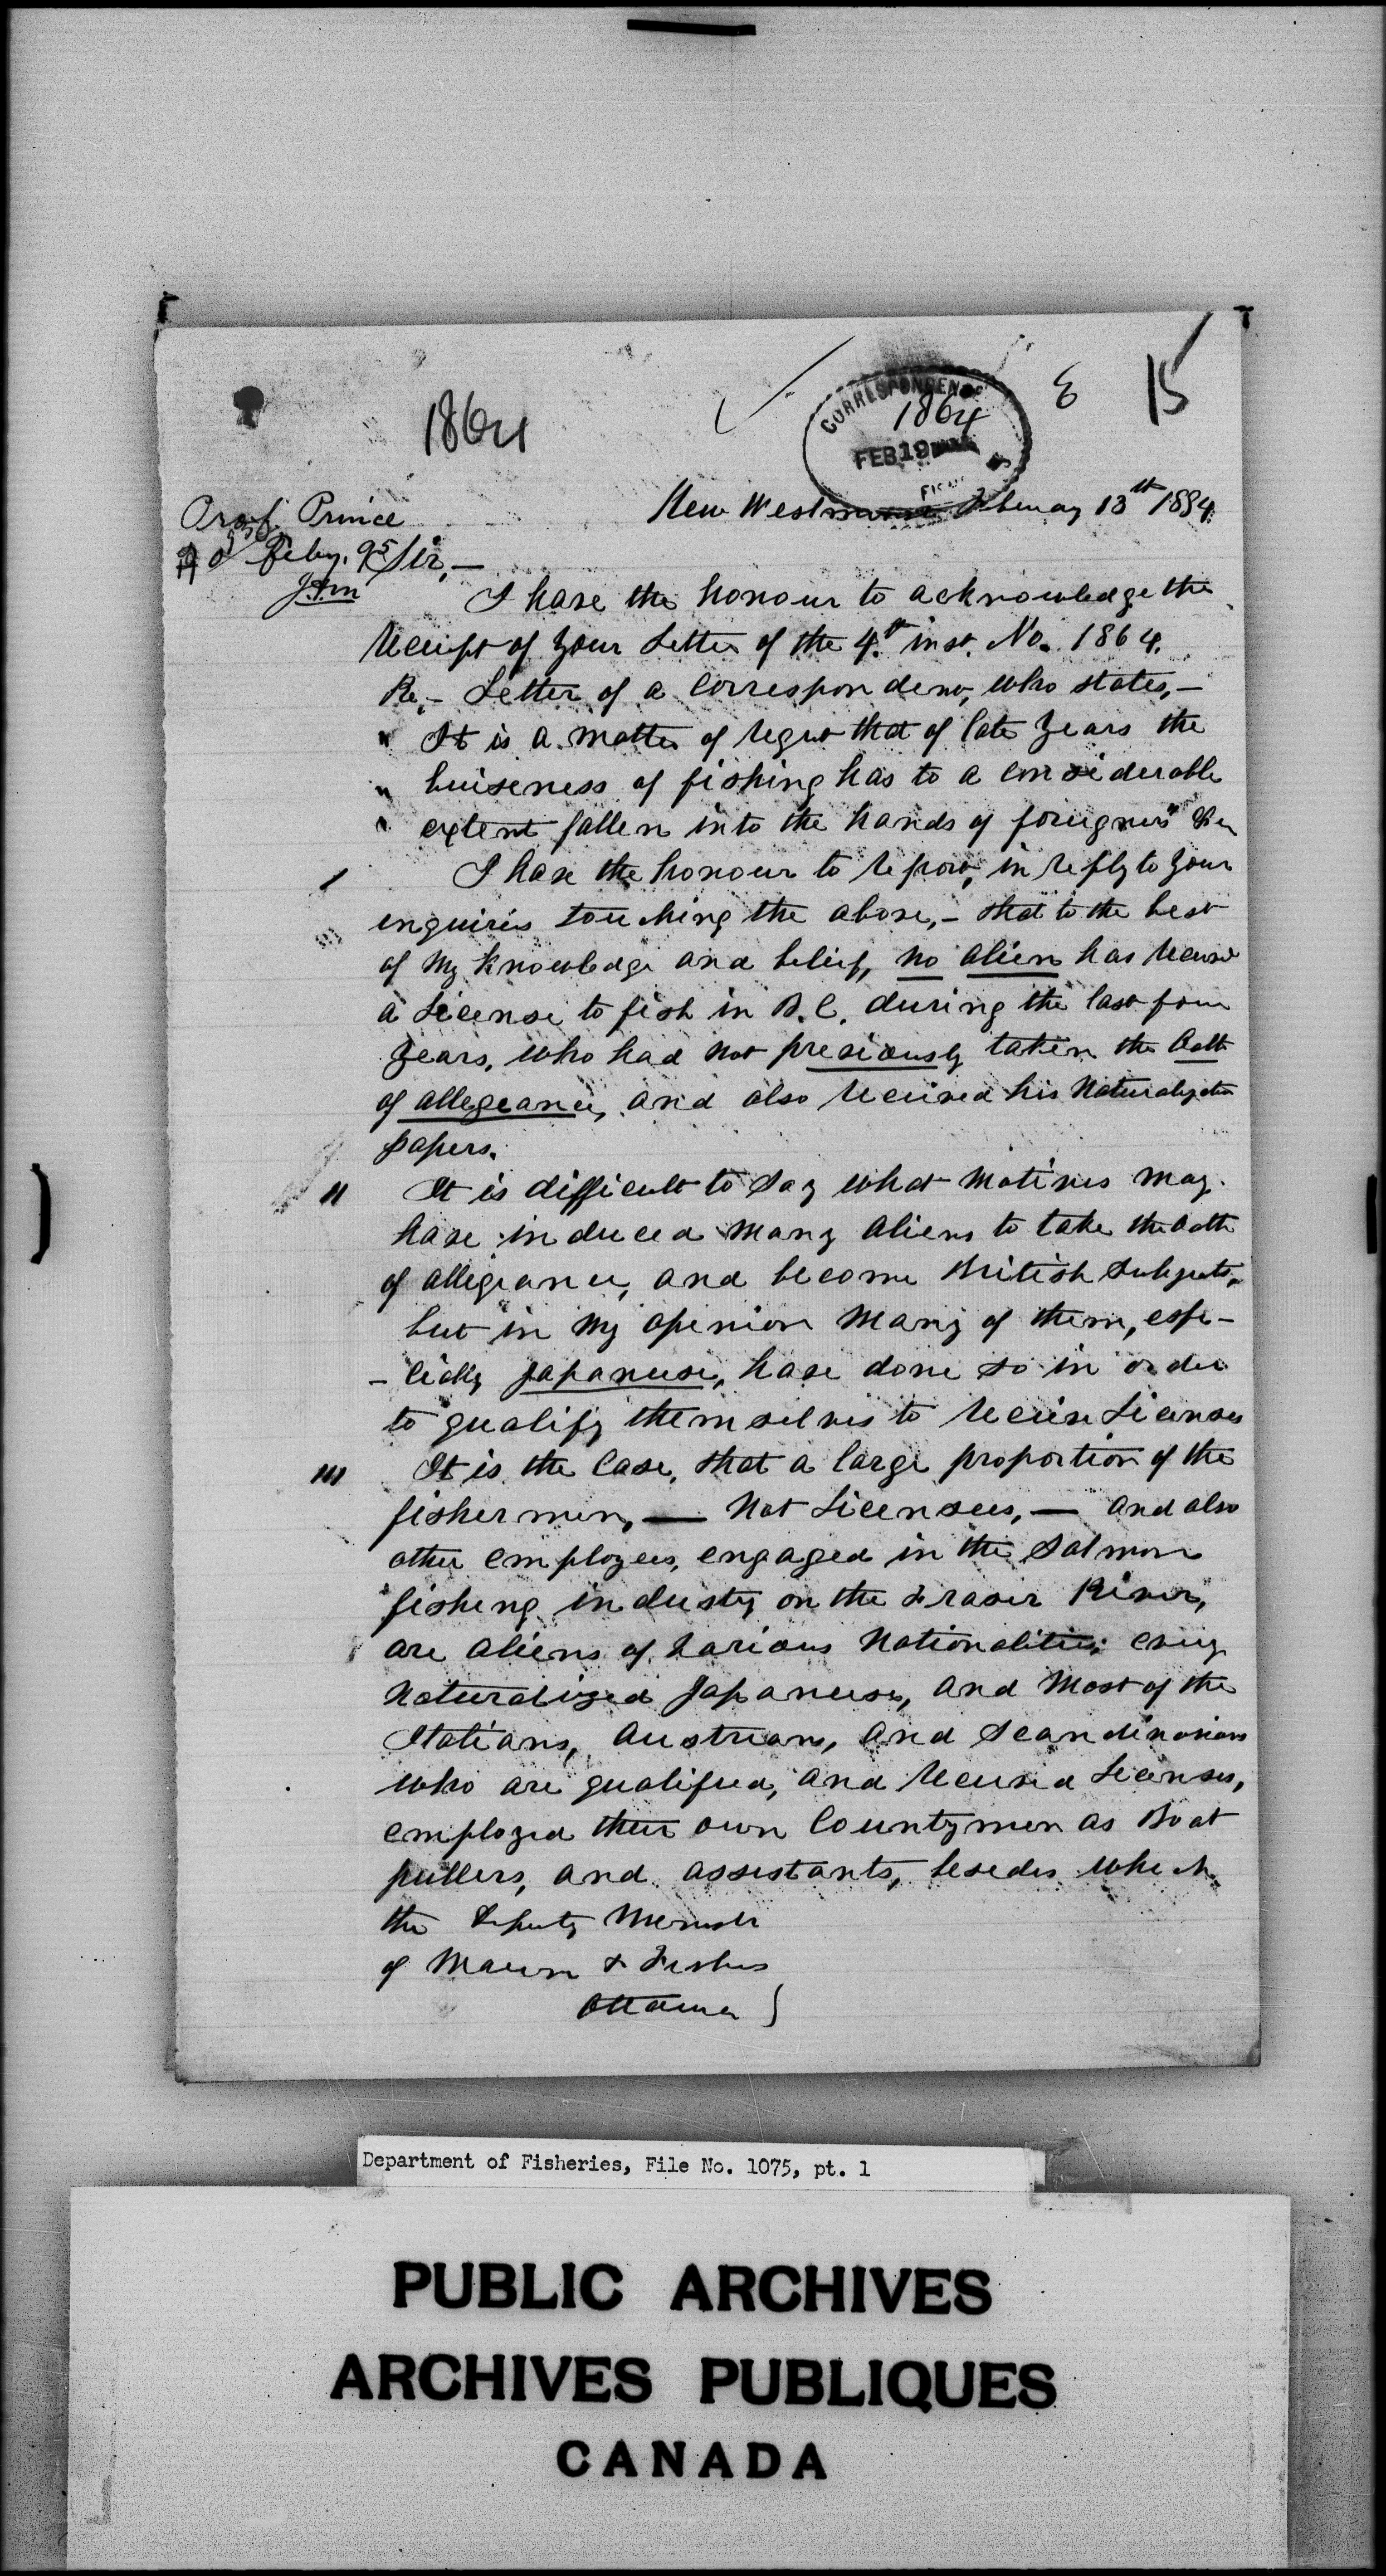 15
E
CORRESPONDENCE
1864
1864
FEB 19
New Westminster February 13th 1894
Prof. Prince
Feby. 95
Sir,—
I have the honour to acknowledge the
receipt of your Letter of the 4th inst. No. 1864.
Re,- Letter of a Correspondent, who states,—
" It is a matter of regret that of late years the
" buiseness of fishing has to a considerable
" extent fallen into the hands of foreigners"
I I have the honour to report, in reply to your
enquiries touching the above,- that to the best
of my knowledge and belief, no alien has received
a License to fish in B.C. during the last four
years, who had not previously taken the Oath
of allegeance, and also received his Naturalization
papers.
II It is difficult to say what motives may
have induced many aliens to take the oath
of allegiance, and become British Subjects,
but in my opinion many of them, espe-
-cially Japaneese, have done so in order
to qualify themselves to receive Licenses
III It is the Case, that a large proportion of the
fishermen, — Not Licensees, — and also
other employees, engaged in the Salmon
fishing industry on the Fraser River,
are aliens of various Nationalities; every
Naturalized Japaneese, and most of the
Italians, Austrians, and Scandinavians
who are qualified, and received Licenses,
employed their own Countrymen as Boat
pullers, and assistants, besides which
the Deputy Minister
of Marine & Fisheries
Ottawa }
Department of Fisheries, File No. 1075, pt. 1
PUBLIC ARCHIVES
ARCHIVES PUBLIQUES
CANADA